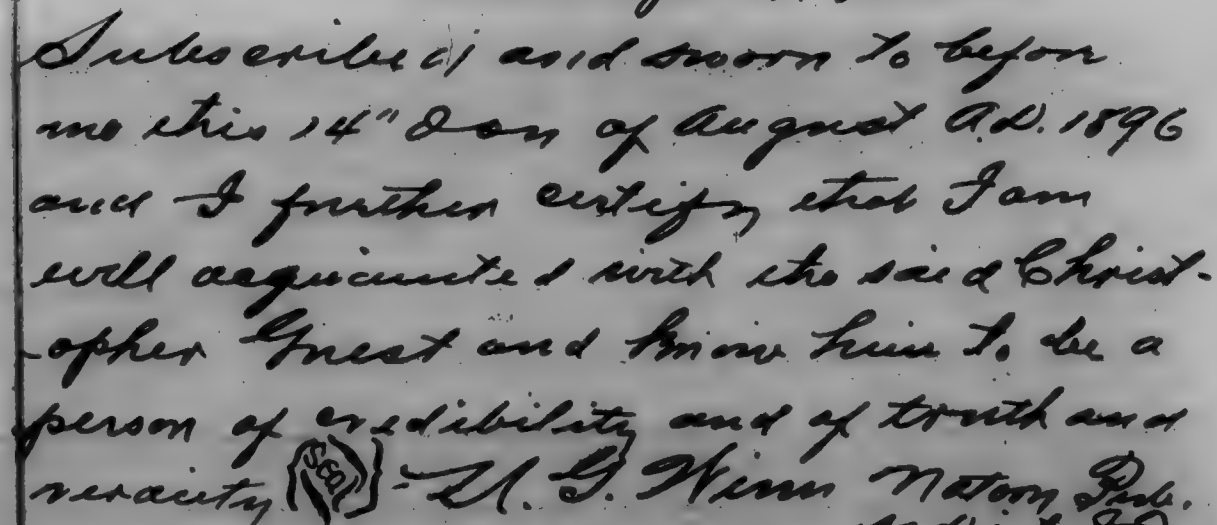 Subscribed and sworn to before
me this 14" Day of August A.D. 1896
and I further certify that I am
well acquainted with the said Christ-
opher Guest and know him to be a
person of credibility and of truth and
veracity Seal - U. G. Winn Notary Pub.